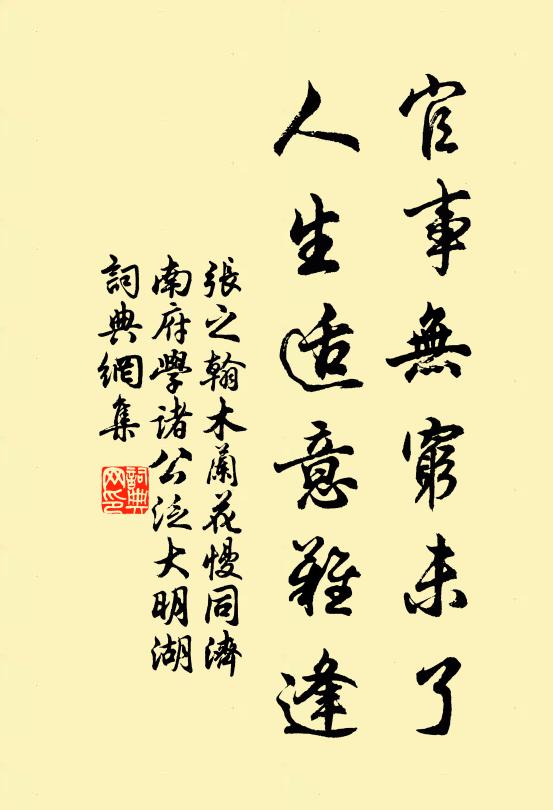 官事無窮未了
人生适意難逢
張之翰木蘭花慢同濟
南府學諸公泛大明湖
詞典網集
詞典網印